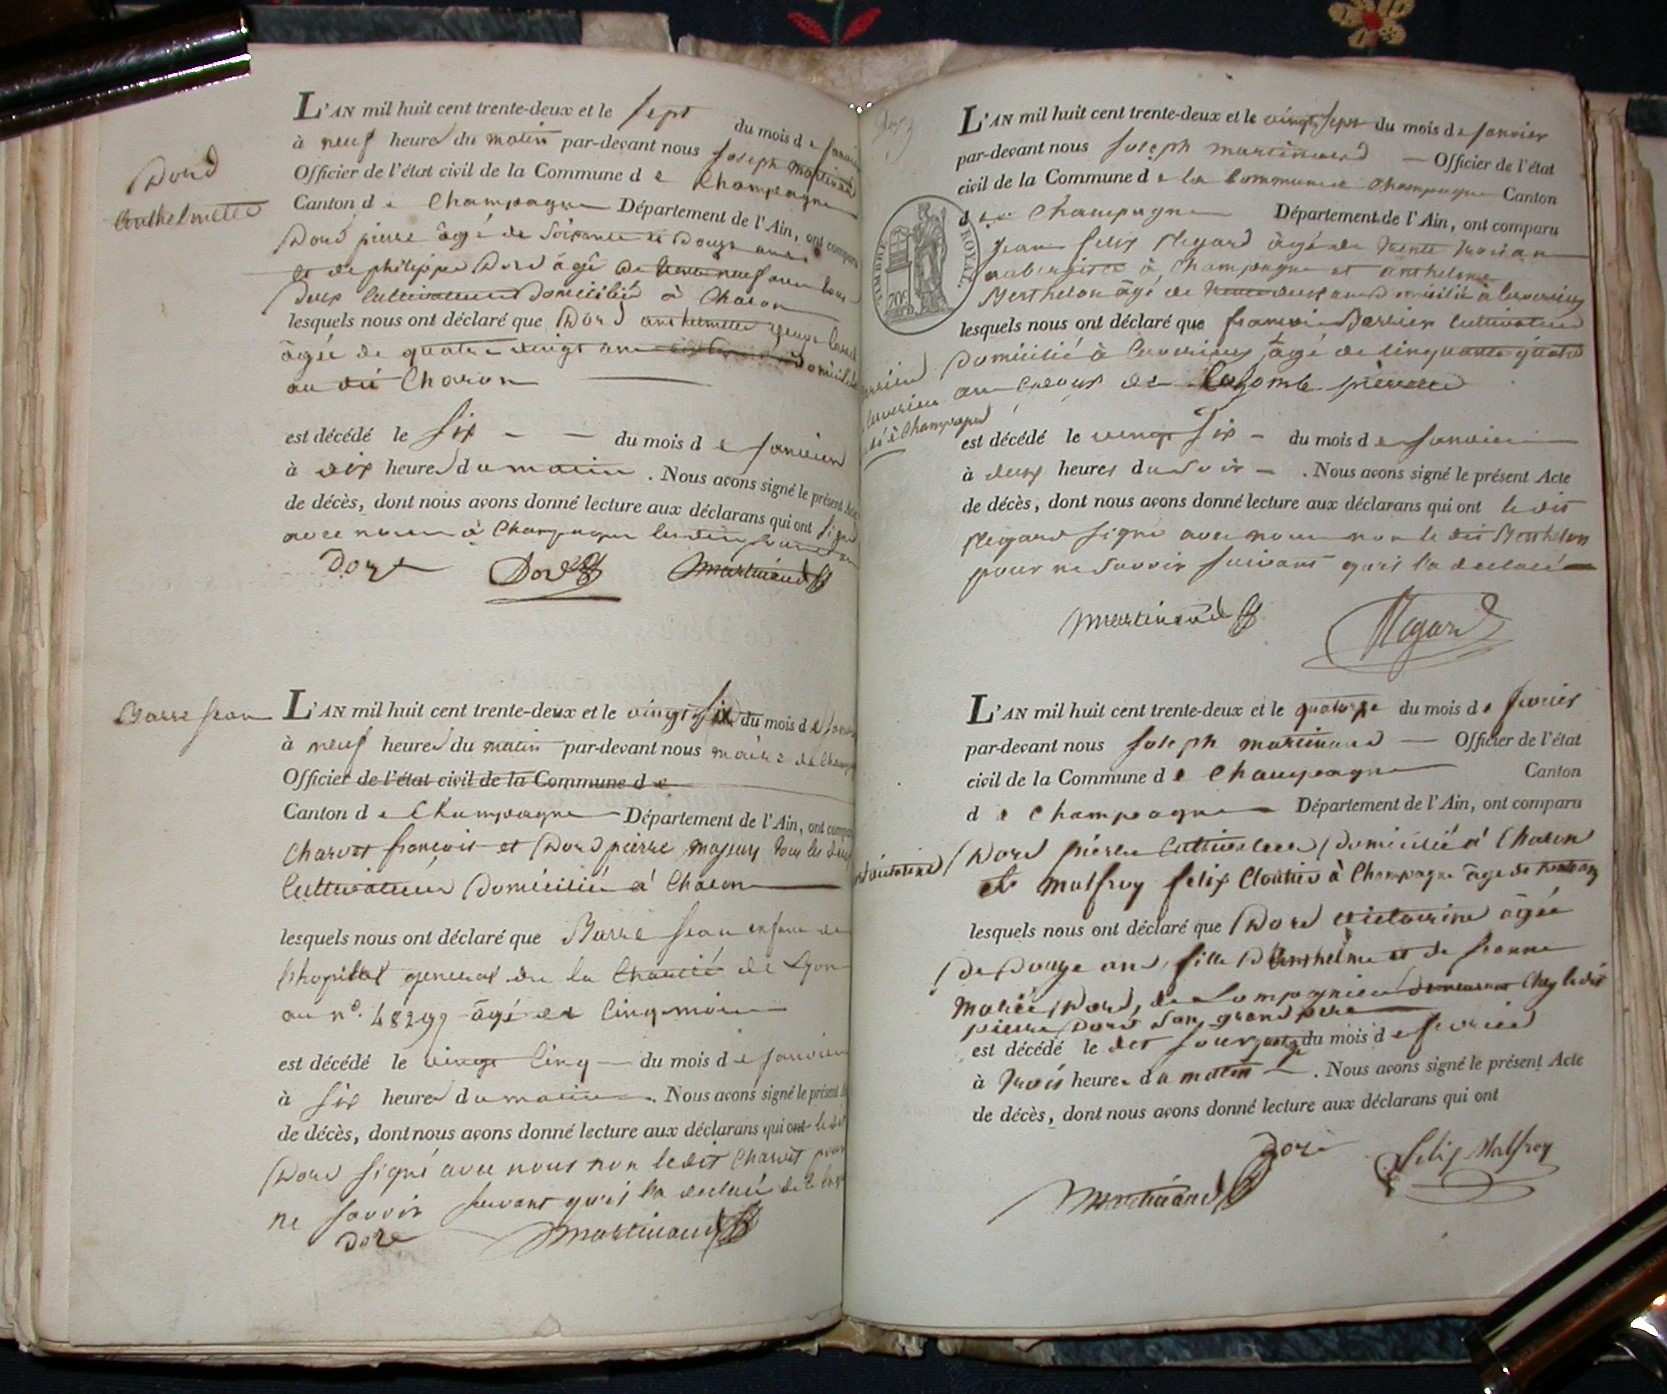 Dord
L'AN mil huit cent trente-deux et le sept du mois de janvier
à neuf heures du matin par-devant nous joseph martinand
Officier de l'état civil de la Commune de Champagne
Canton de Champagne Département de l'Ain, ont comparu
Dord pierre âgé de soixante et douze ans
et de philippe Dord âgé de trente neuf ans tous
deux Cultivateurs domicilié à Charon
lesquels nous ont déclaré que Dord anthelmette
âgée de quatre vingt ans domiciliée
au dit Charon
est décédé le six du mois de janvier
à dix heures du matin . Nous avons signé le présent Acte
de décès, dont nous avons donné lecture aux déclarans qui ont signé
avec nous à Champagne
Dord Dord martinand
Barre jean
L'AN mil huit cent trente-deux et le vingt six du mois de janvier
à neuf heures du matin par-devant nous maire de Champagne
Officier de l'état civil de la Commune de
Canton de Champagne Département de l'Ain, ont comparu
Charvet françois et Dord pierre tous les deux
Cultivateurs domicilié à Charon
lesquels nous ont déclaré que Barre jean enfant de
l'hopital general de la Charité de Lyon
au n° 48299 âgé de cinq mois
est décédé le vingt cinq du mois de janvier
à six heures du matin . Nous avons signé le présent
de décès, dont nous avons donné lecture aux déclarans qui ont le dit
Dord signé avec nous non le dit Charvet pour
ne savoir suivant qu'il la declaré
Dord martinand
TIMBRE ROYAL
L'AN mil huit cent trente-deux et le vingt sept du mois de janvier
par-devant nous joseph martinand Officier de l'état
civil de la Commune de la Commune de Champagne Canton
de Champagne Département de l'Ain, ont comparu
jean felix Megard âgé de trente trois ans
aubergiste à Champagne et anthelme
Berthelon âgé de trente deux ans domicilié à
lesquels nous ont déclaré que françois Cultivateur
domicilié à âgé de cinquante quatre
ans de
à Champagne
est décédé le vingt six du mois de janvier
à deux heures du soir . Nous avons signé le présent Acte
de décès, dont nous avons donné lecture aux déclarans qui ont le dit
Megard signé avec nous non le dit Berthelon
pour ne savoir suivant qu'il la declaré
martinand Megard
L'AN mil huit cent trente-deux et le quatorze du mois de fevrier
par-devant nous joseph martinand Officier de l'état
civil de la Commune de Champagne Canton
de Champagne Département de l'Ain, ont comparu
Dord pierre Cultivateur domicilié à Charon
et Malfroy felix Cloutier à Champagne âgé de
lesquels nous ont déclaré que Dord victoirine âgée
De Douze ans, fille D'Anthelme et de jeanne
Mariée Dord, de demeurant Chez le dit
pierre Dord son grand pere
est décédé le dit jour du mois de fevrier
à trois heures du matin . Nous avons signé le présent Acte
de décès, dont nous avons donné lecture aux déclarans qui ont
Dord felix Malfroy
Martinand